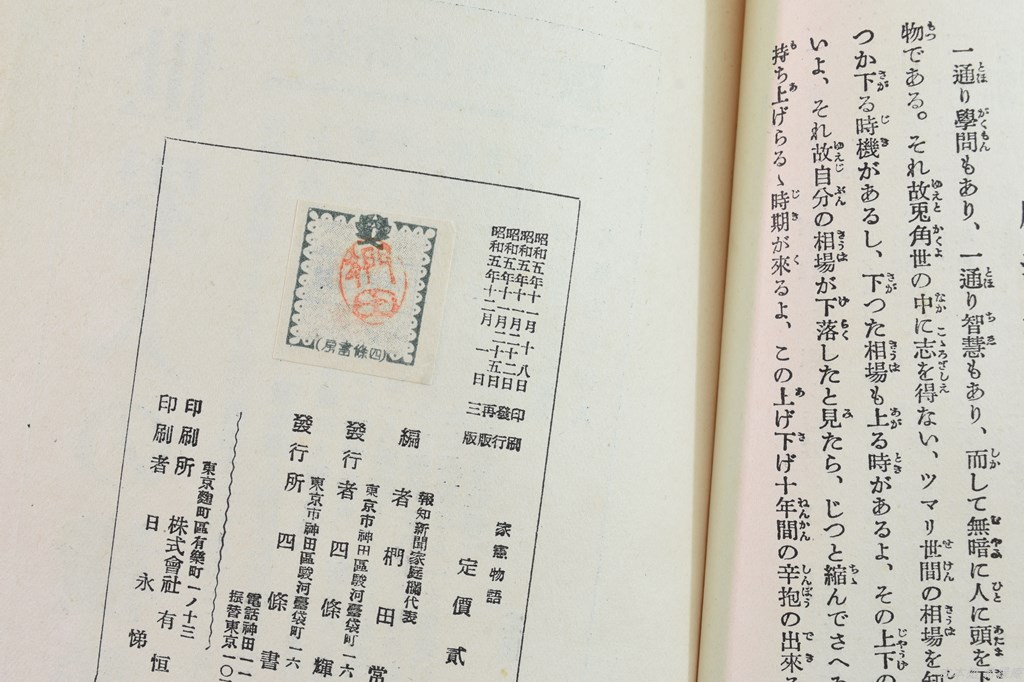 一通り學問もあり、一通り智慧もあり、而して無暗に人に頭を下
物である。それ故兎角世の中に志を得ない、ツマリ世間の相場を知
つか下る時機があるし、下つた相場も上る時があるよ、その上下の
いよ、それ故自分の相場が下落したと見たら、じつと縮んでさへ
持ち上げらるゝ時期が來るよ、この上げ下げ十年間の辛抱の出來
昭和五年十一月十八日 印刷
昭和五年十一月二十二日 發行
昭和五年十一月二十五日 再版
昭和五年十二月一日 三版
(四條書房)
家憲物語
定價貳
報知新聞家庭欄代表
編者 椚田常
東京市神田區駿河臺袋町一六
發行者 四條輝
東京市神田區駿河臺袋町一六
發行所 四條書
電話神田一一
振替東京一〇
東京麴町區有樂町一ノ十三
印刷所 株式會社有恒
印刷者 日永悌